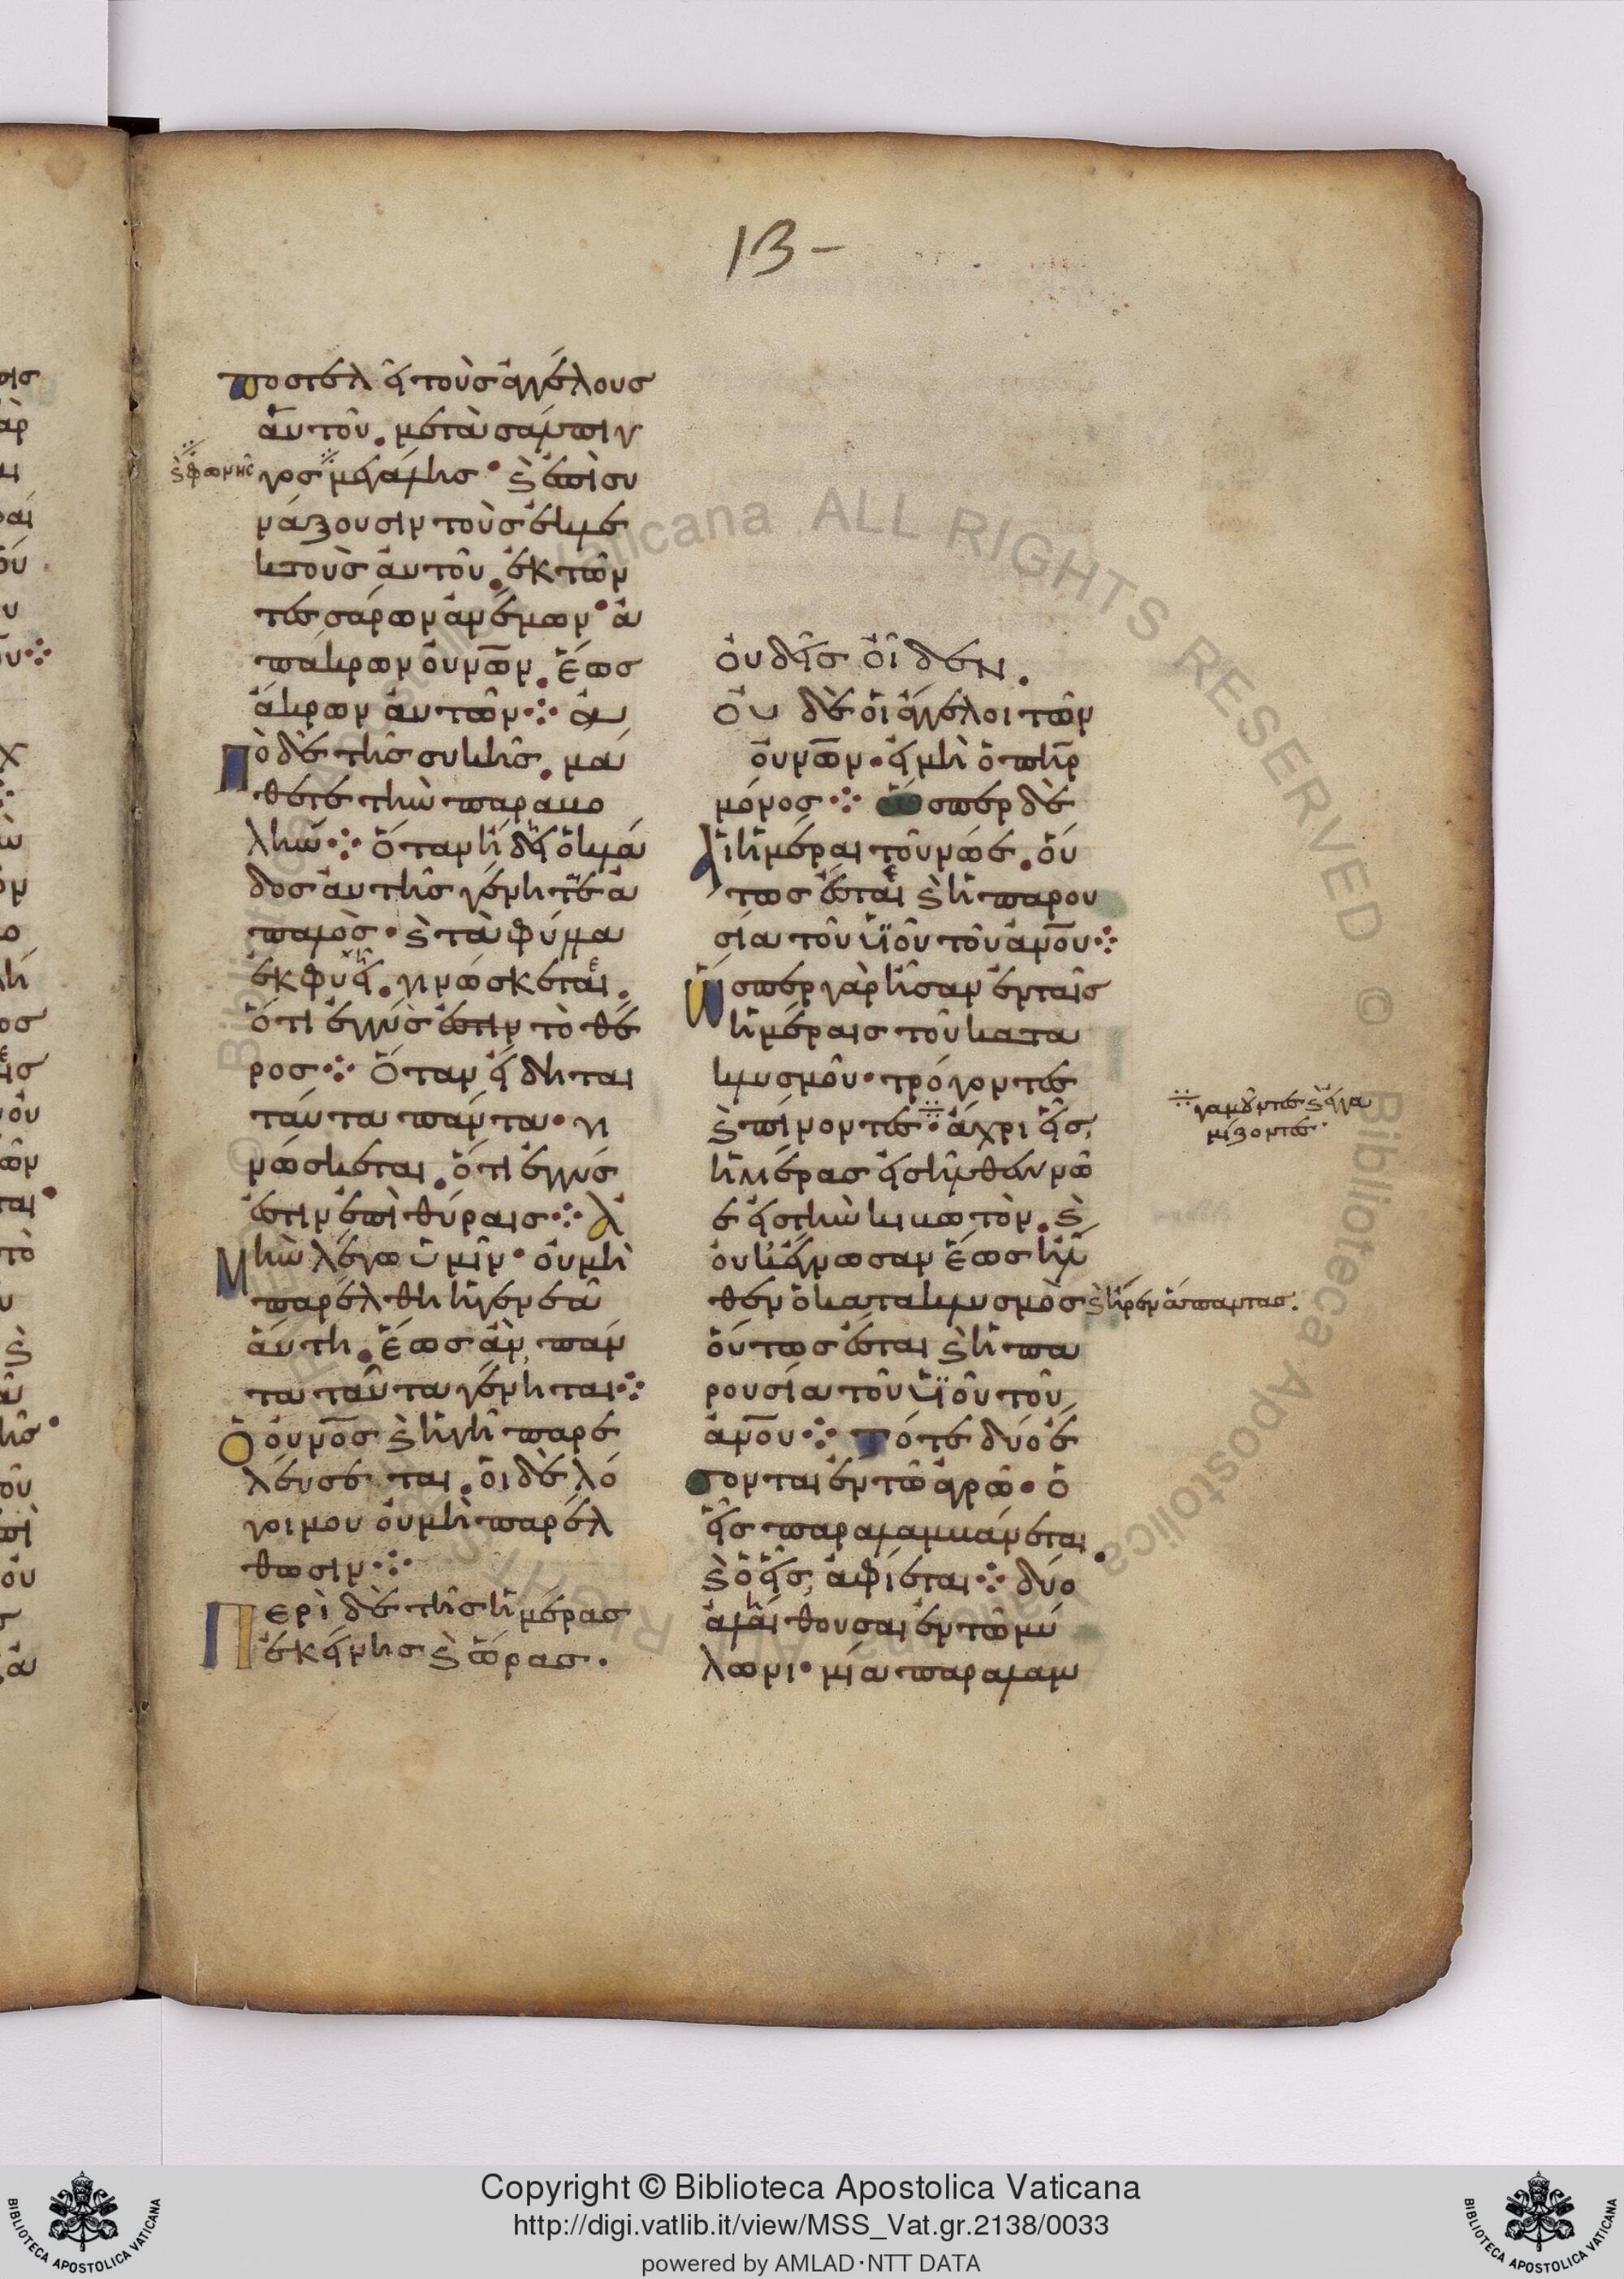 13-
ποστελεῖ τοὺς ἀγγέλους
ἀυτοῦ. μετὰ σάλπιγ
γος μεγάλης· ϗ ἐπισυ
ϗ φωνῆς
νάξουσιν τοὺς ἐκλε
κτοὺς ἀυτοῦ. ἐκ τῶν
τεσσάρων ἀνέμων· ἀ
π᾽ ἄκρων ὀυνῶν. ἕως
ἄκρων ἀυτῶν⁘ ἀ
πὸ δὲ τῆς συκῆς. μά
θετε τὴν παραβο
λήν⁘ ὅταν ἤδη ὁ κλά
δος ἀυτῆς γένηται ἁ
παλὸς· ϗ τὰ φύλλα
ἐκφύῃ. γινώσκεται.
ὅτι ἐγγὺς ἐστιν τὸ θέ
ρος⁘ ὅταν εἴδηται
ταύτα πάντα· γι
νώσκεται. ὅτι ἐγγύς
ἐστιν ἐπὶ θύραις⁘ ἀ
μὴν λέγω ὑμῖν· ὀυ μὴ
παρέλθη ἡ γενεὰ
ἅυτη. ἕως ἂν πάν
τα ταῦτα γένηται⁘
ὁ ὀυνος ϗ ἡ γῆ παρε
λέυσεται. ὁι δὲ λό
γοι μου ὀυ μὴ παρέλ
θωσιν⁘
Περὶ δὲ τῆς ἡμέρας
ἐκείνης ϗ ὥρας.
ὀυδεὶς οἶδεν.
ὀυ δὲ ὁι ἄγγελοι τῶν
ὀυνῶν· εἰ μὴ ὁ πηρ
μόνος⁘ ὥσπερ δὲ
ἁι ἡμέραι τοῦ νῶε. ὅυ
τως ἔσται ϗ ἡ παρου
σία τοῦ ὑϊοῦ τοῦ ἀνου⁘
ὥσπερ γὰρ ἦσαν ἐν ταῖς
ἡμέραις τοῦ κατα
κλυσμοῦ· τρόγοντες
ϗ πίνοντες· ἄχρι ἧς
γαμοῦντες ϗ ἐκγα
μίζοντες·
ἡμέρας εἰσῆλθεν νῶ
ε εἰς τὴν κιβωτόν. ϗ
ὀυκ ἔγνωσαν ἕως ἦλ
θεν ὁ κατακλυσμὸς ϗ ἦρεν ἅπαντας.
ὅυτως ἔσται ϗ ἡ πα
ρουσία τοῦ ὑϊοῦ τοῦ
ἀνου⁘ τότε δύο ἔ
σονται ἐν τῶ ἀγρῶ· ὁ
εἷς παραλαμβάνεται.
ϗ ὁ εἷς ἀφίεται⁘ δύο
ἀλήθουσαι ἐν τῶ μύ
λωνι· μία παραλαμ
Copyright © Biblioteca Apostolica Vaticana
http://digi.vatlib.it/view/MSS_Vat.gr.2138/0033
powered by AMLAD·NTT DATA
BIBLIOTECA APOSTOLICA VATICANA
BIBLIOTECA APOSTOLICA VATICANA